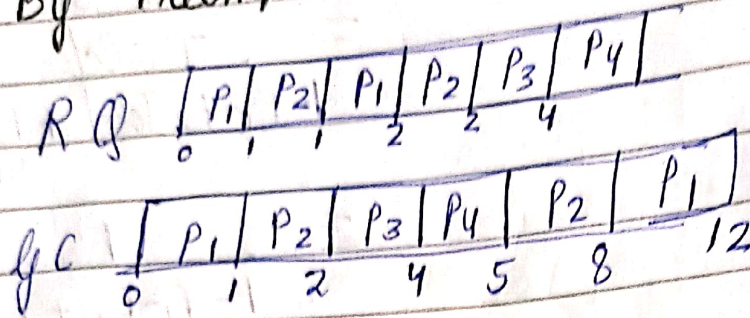 By Theory
RQ P1 P2 P1 P2 P3 P4
0 1 1 2 2 4
GC P1 P2 P3 P4 P2 P1
0 1 2 4 5 8 12